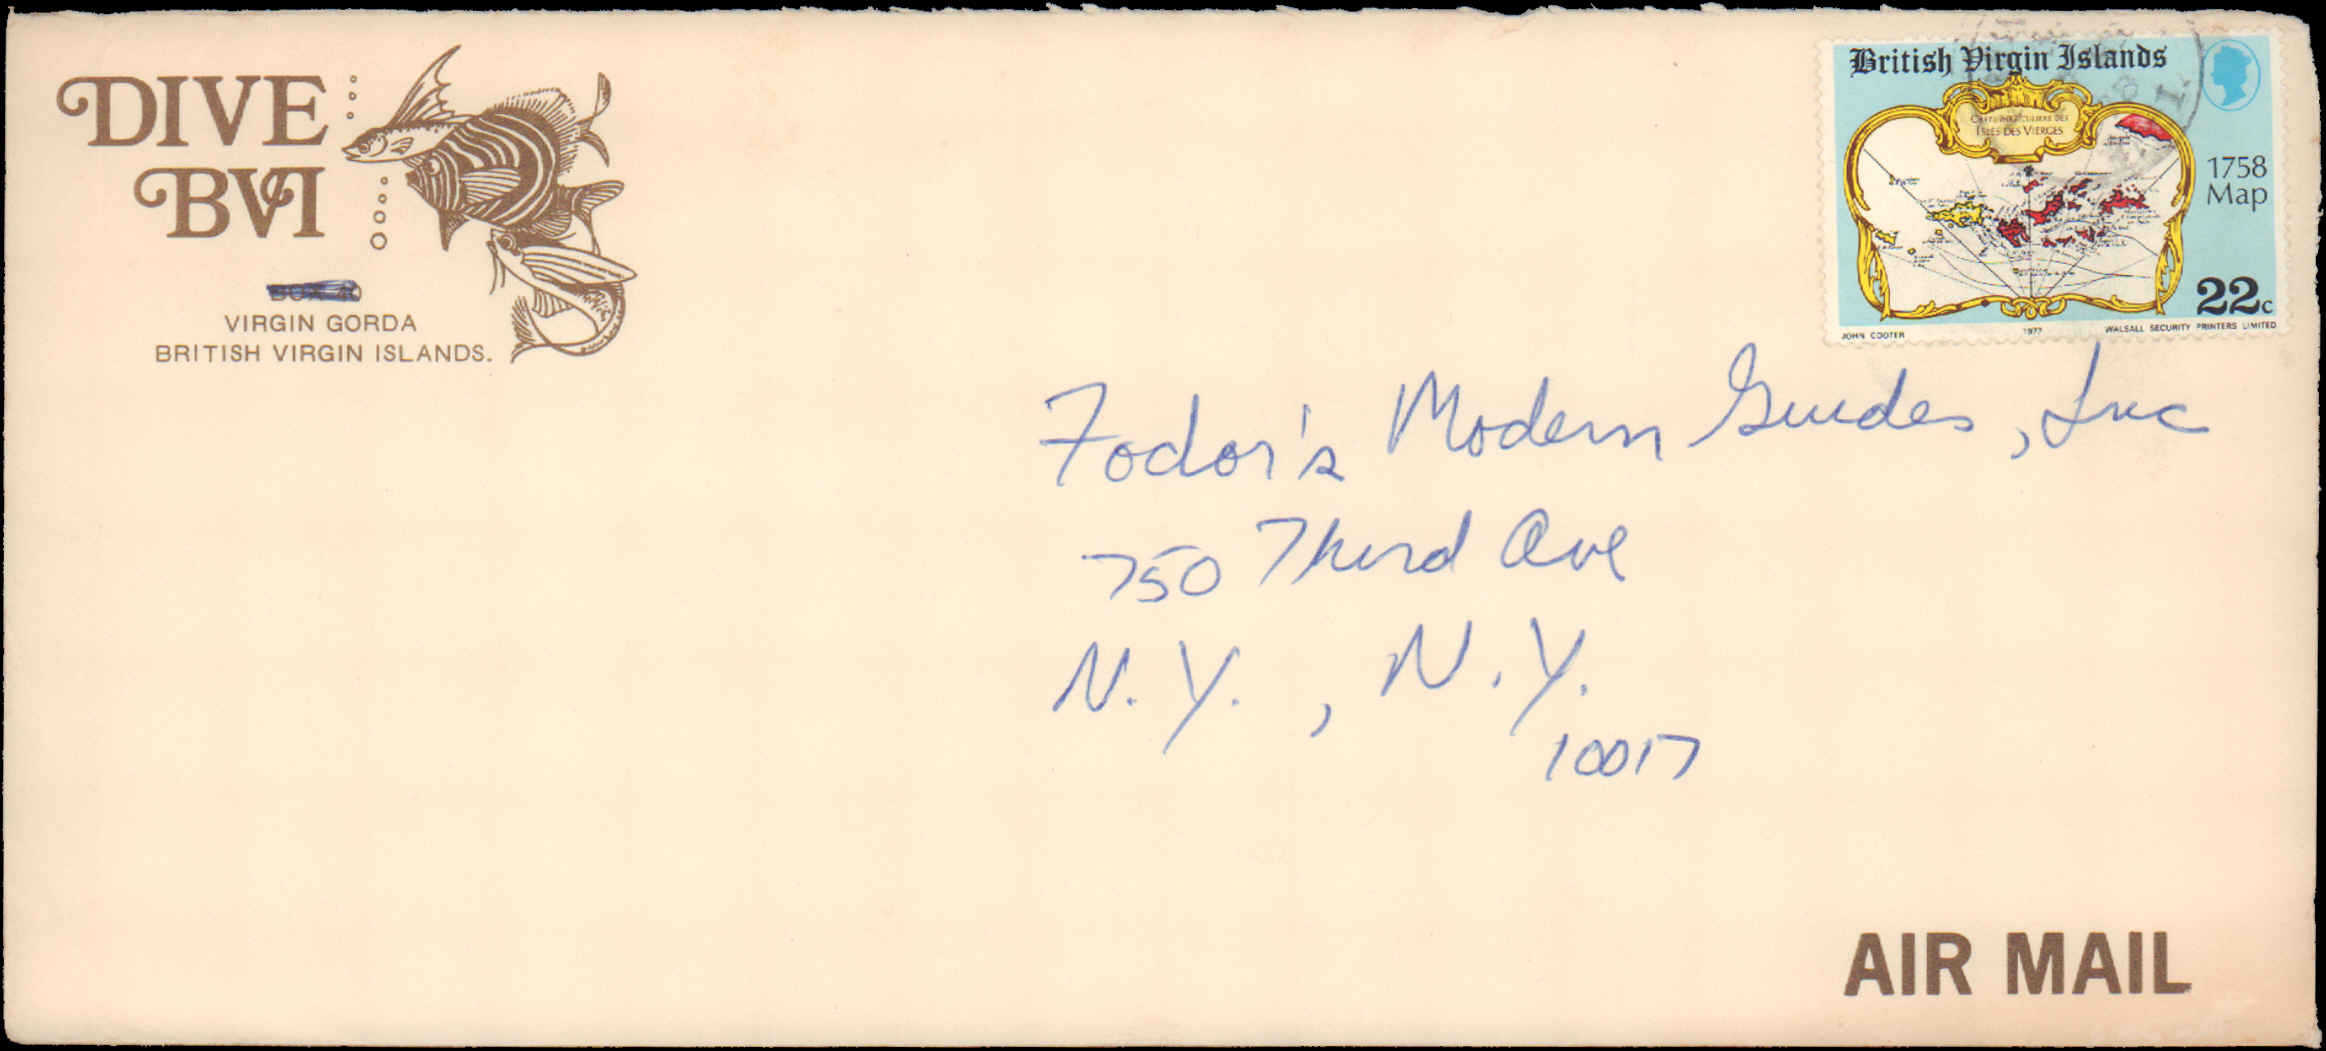 DIVE
BVI
VIRGIN GORDA
BRITISH VIRGIN ISLANDS.
British Virgin Islands
ISLES DES VIERGES
1758
Map
22c
JOHN COOTER
1977
WALSALL SECURITY PRINTERS LIMITED
Fodor's Modern Guides, Inc
750 Third Ave
N.Y., N.Y.
10017
AIR MAIL